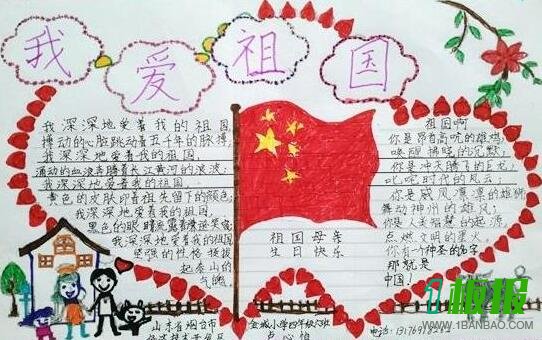 我爱祖国
我深深地爱着我的祖国，
搏动的心脏跳动着五千年的脉搏，
我深深地爱着我的祖国，
涌动的血液奔腾着长江黄河的浪波；
我深深地爱着我的祖国
黄色的皮肤印着祖先留下的颜色；
我深深地爱着我的祖国，
黑色的眼睛流露着
我深深地爱着我的祖国
坚强的性格挺拔
起泰山的
气魄
祖国母亲
生日快乐
祖国啊
你是昂首高吭的雄鸡
唤醒拂晓的沉默，
你是冲天腾飞的巨龙
叱咤时代的风云，
你是威风凛凛的雄狮
舞动神州的雄风，
你是人类智慧的起源，
点燃文明的星火。
你有一个神圣的名字
那就是
中国！
山东省烟台市
金城小学四年级六班
电话：
1板报
WWW.1BANBAO.COM